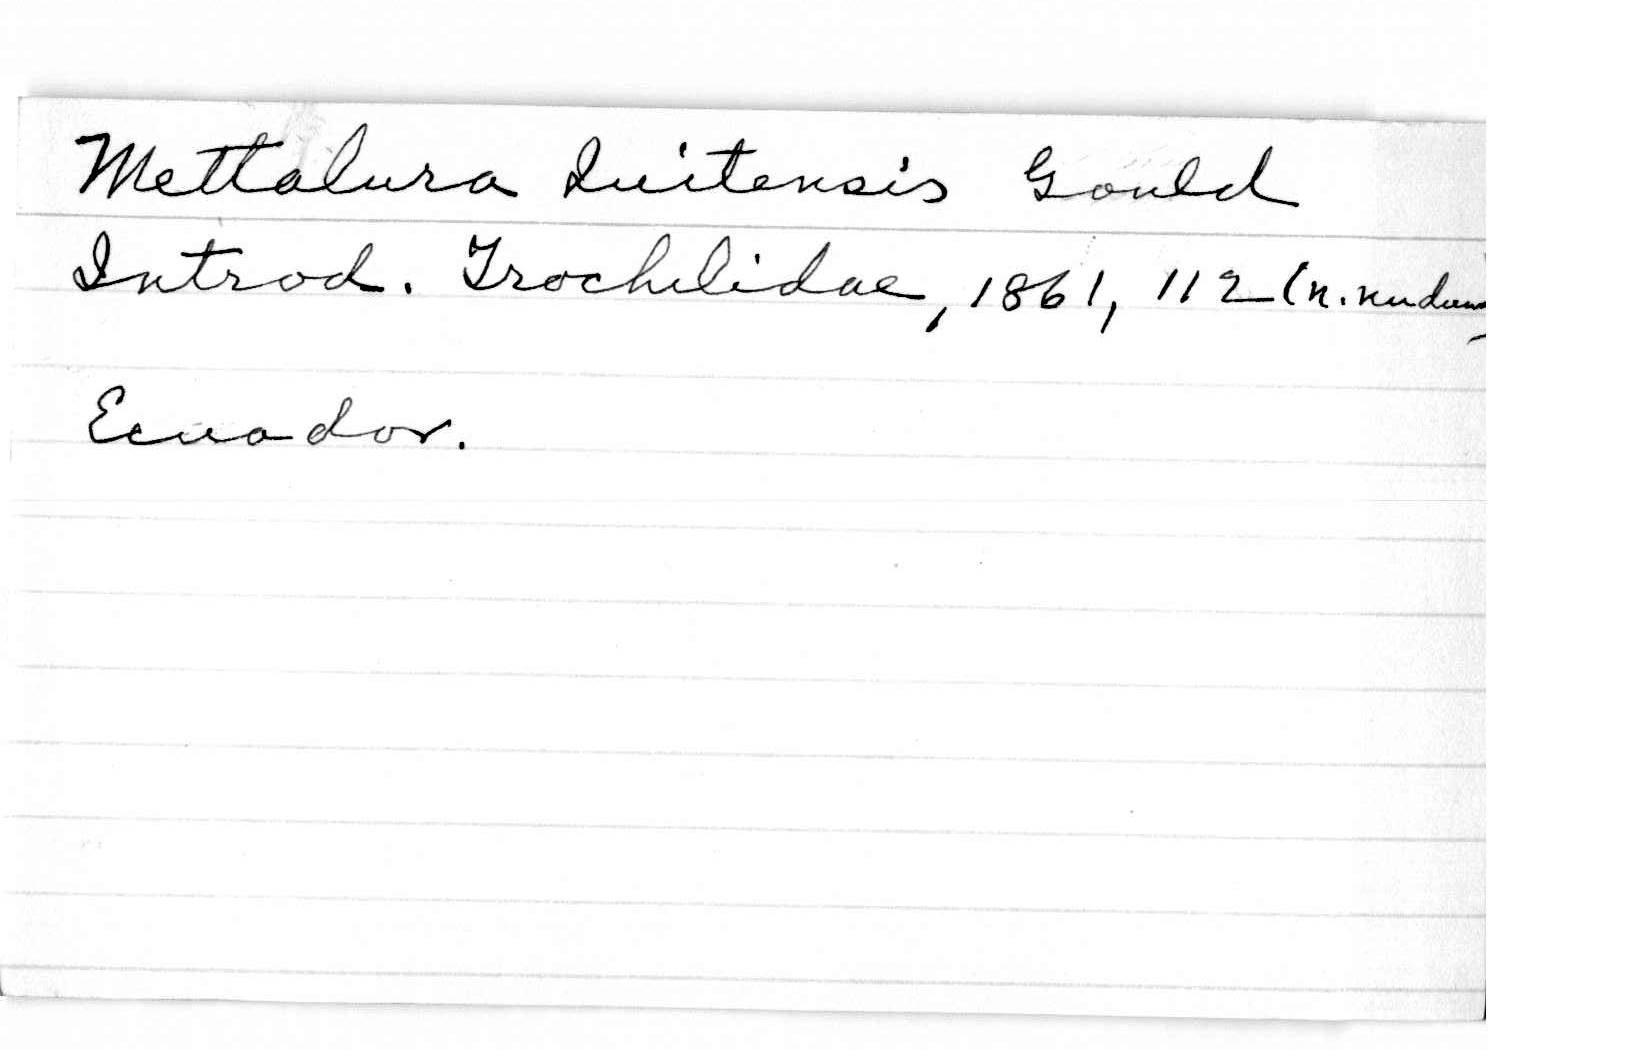 Mettalura Quitensis Gould
Introd. Trochilidae, 1861, 112 (n. nudum)
Ecuador.